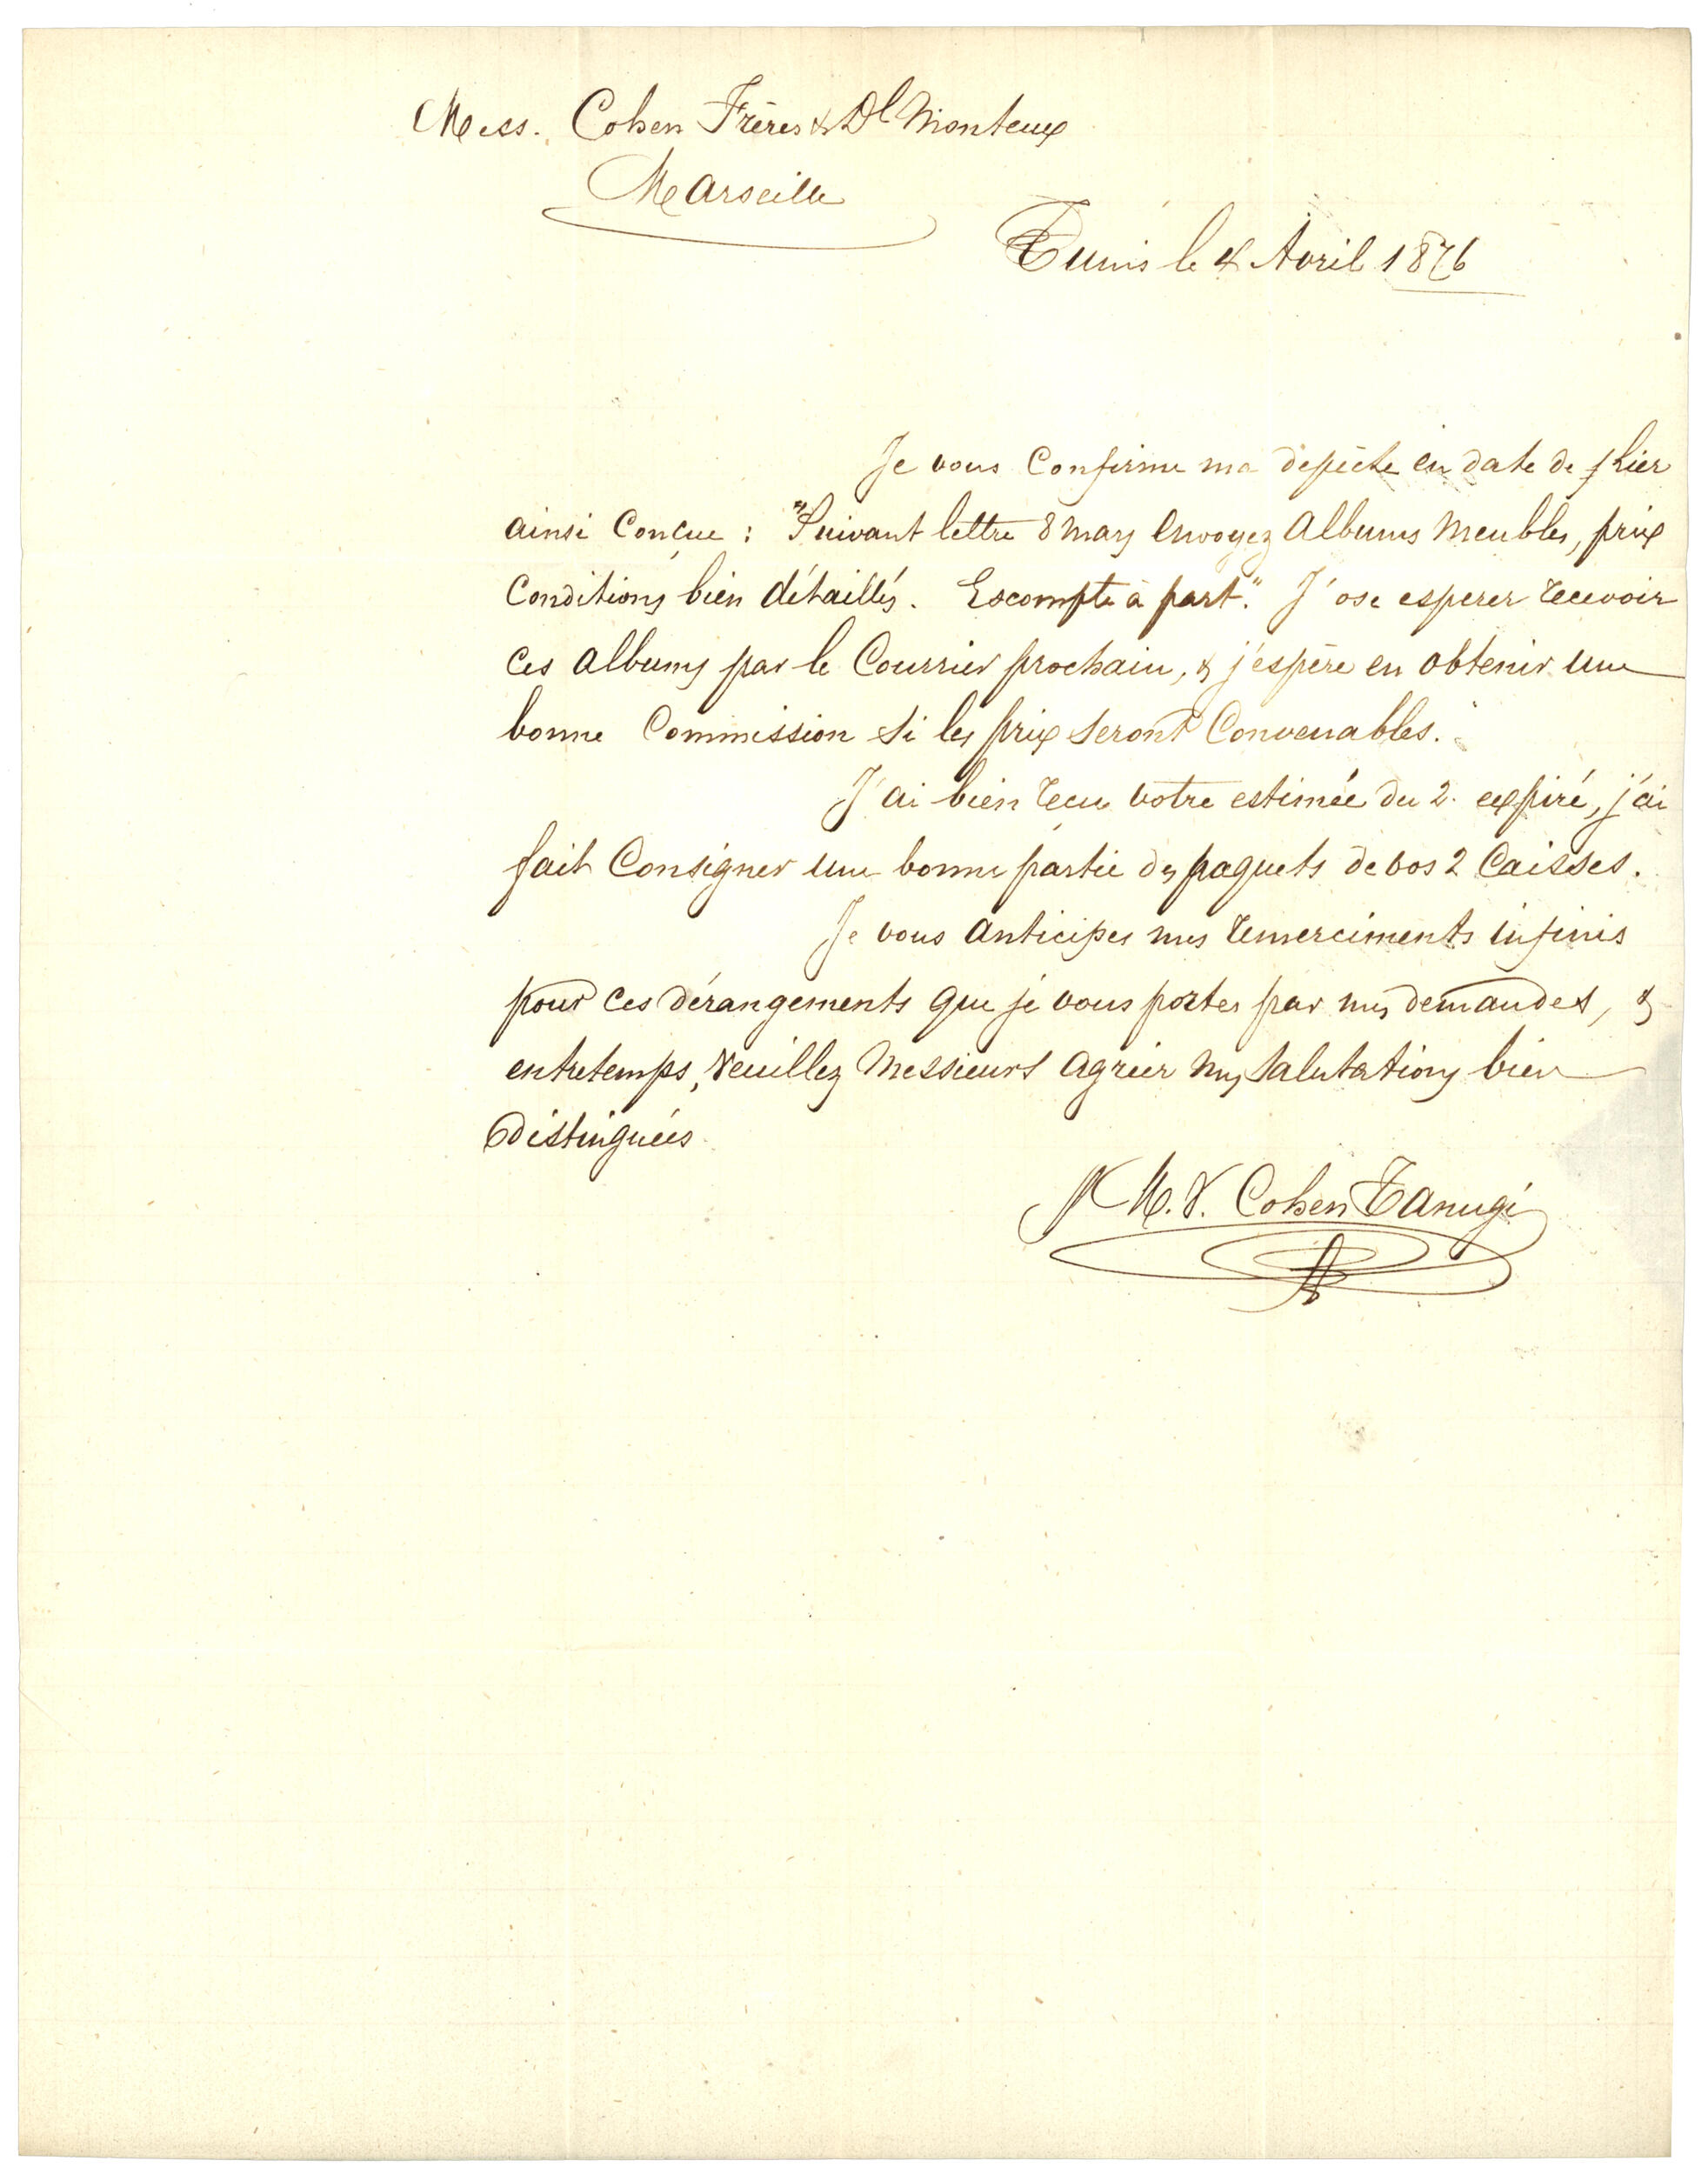 Mess. Cohen Frères & Dl Monteux
Marseille
Tunis le 4 Avril 1876
Je vous Confirme ma dépêche en date de hier
ainsi Conçue : "Suivant lettre 8 mars Envoyez Albums Meubles, prix
Conditions bien détaillés. Escompte à part." J'ose esperer recevoir
Ces albums par le Courrier prochain, & j'espère en obtenir une
bonne Commission Si les prix Seront Convenables.
J'ai bien recu votre estimée du 2. expiré, j'ai
fait Consigner une bonne partie des paquets de vos 2 Caisses.
Je vous Anticipes mes remerciments infinis
pour Ces dérangements que je vous portes par mes demandes, &
entretemps, Veuillez Messieurs Agréer mes Salutations bien
Distinguées
M. V. Cohen Tanugi